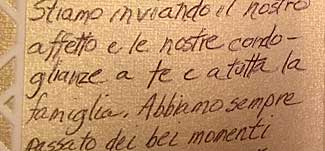 Stiamo inviando il nostro
affetto e le nostre condo-
glianze a te e a tutta la
famiglia. Abbiamo sempre
passato dei bei momenti